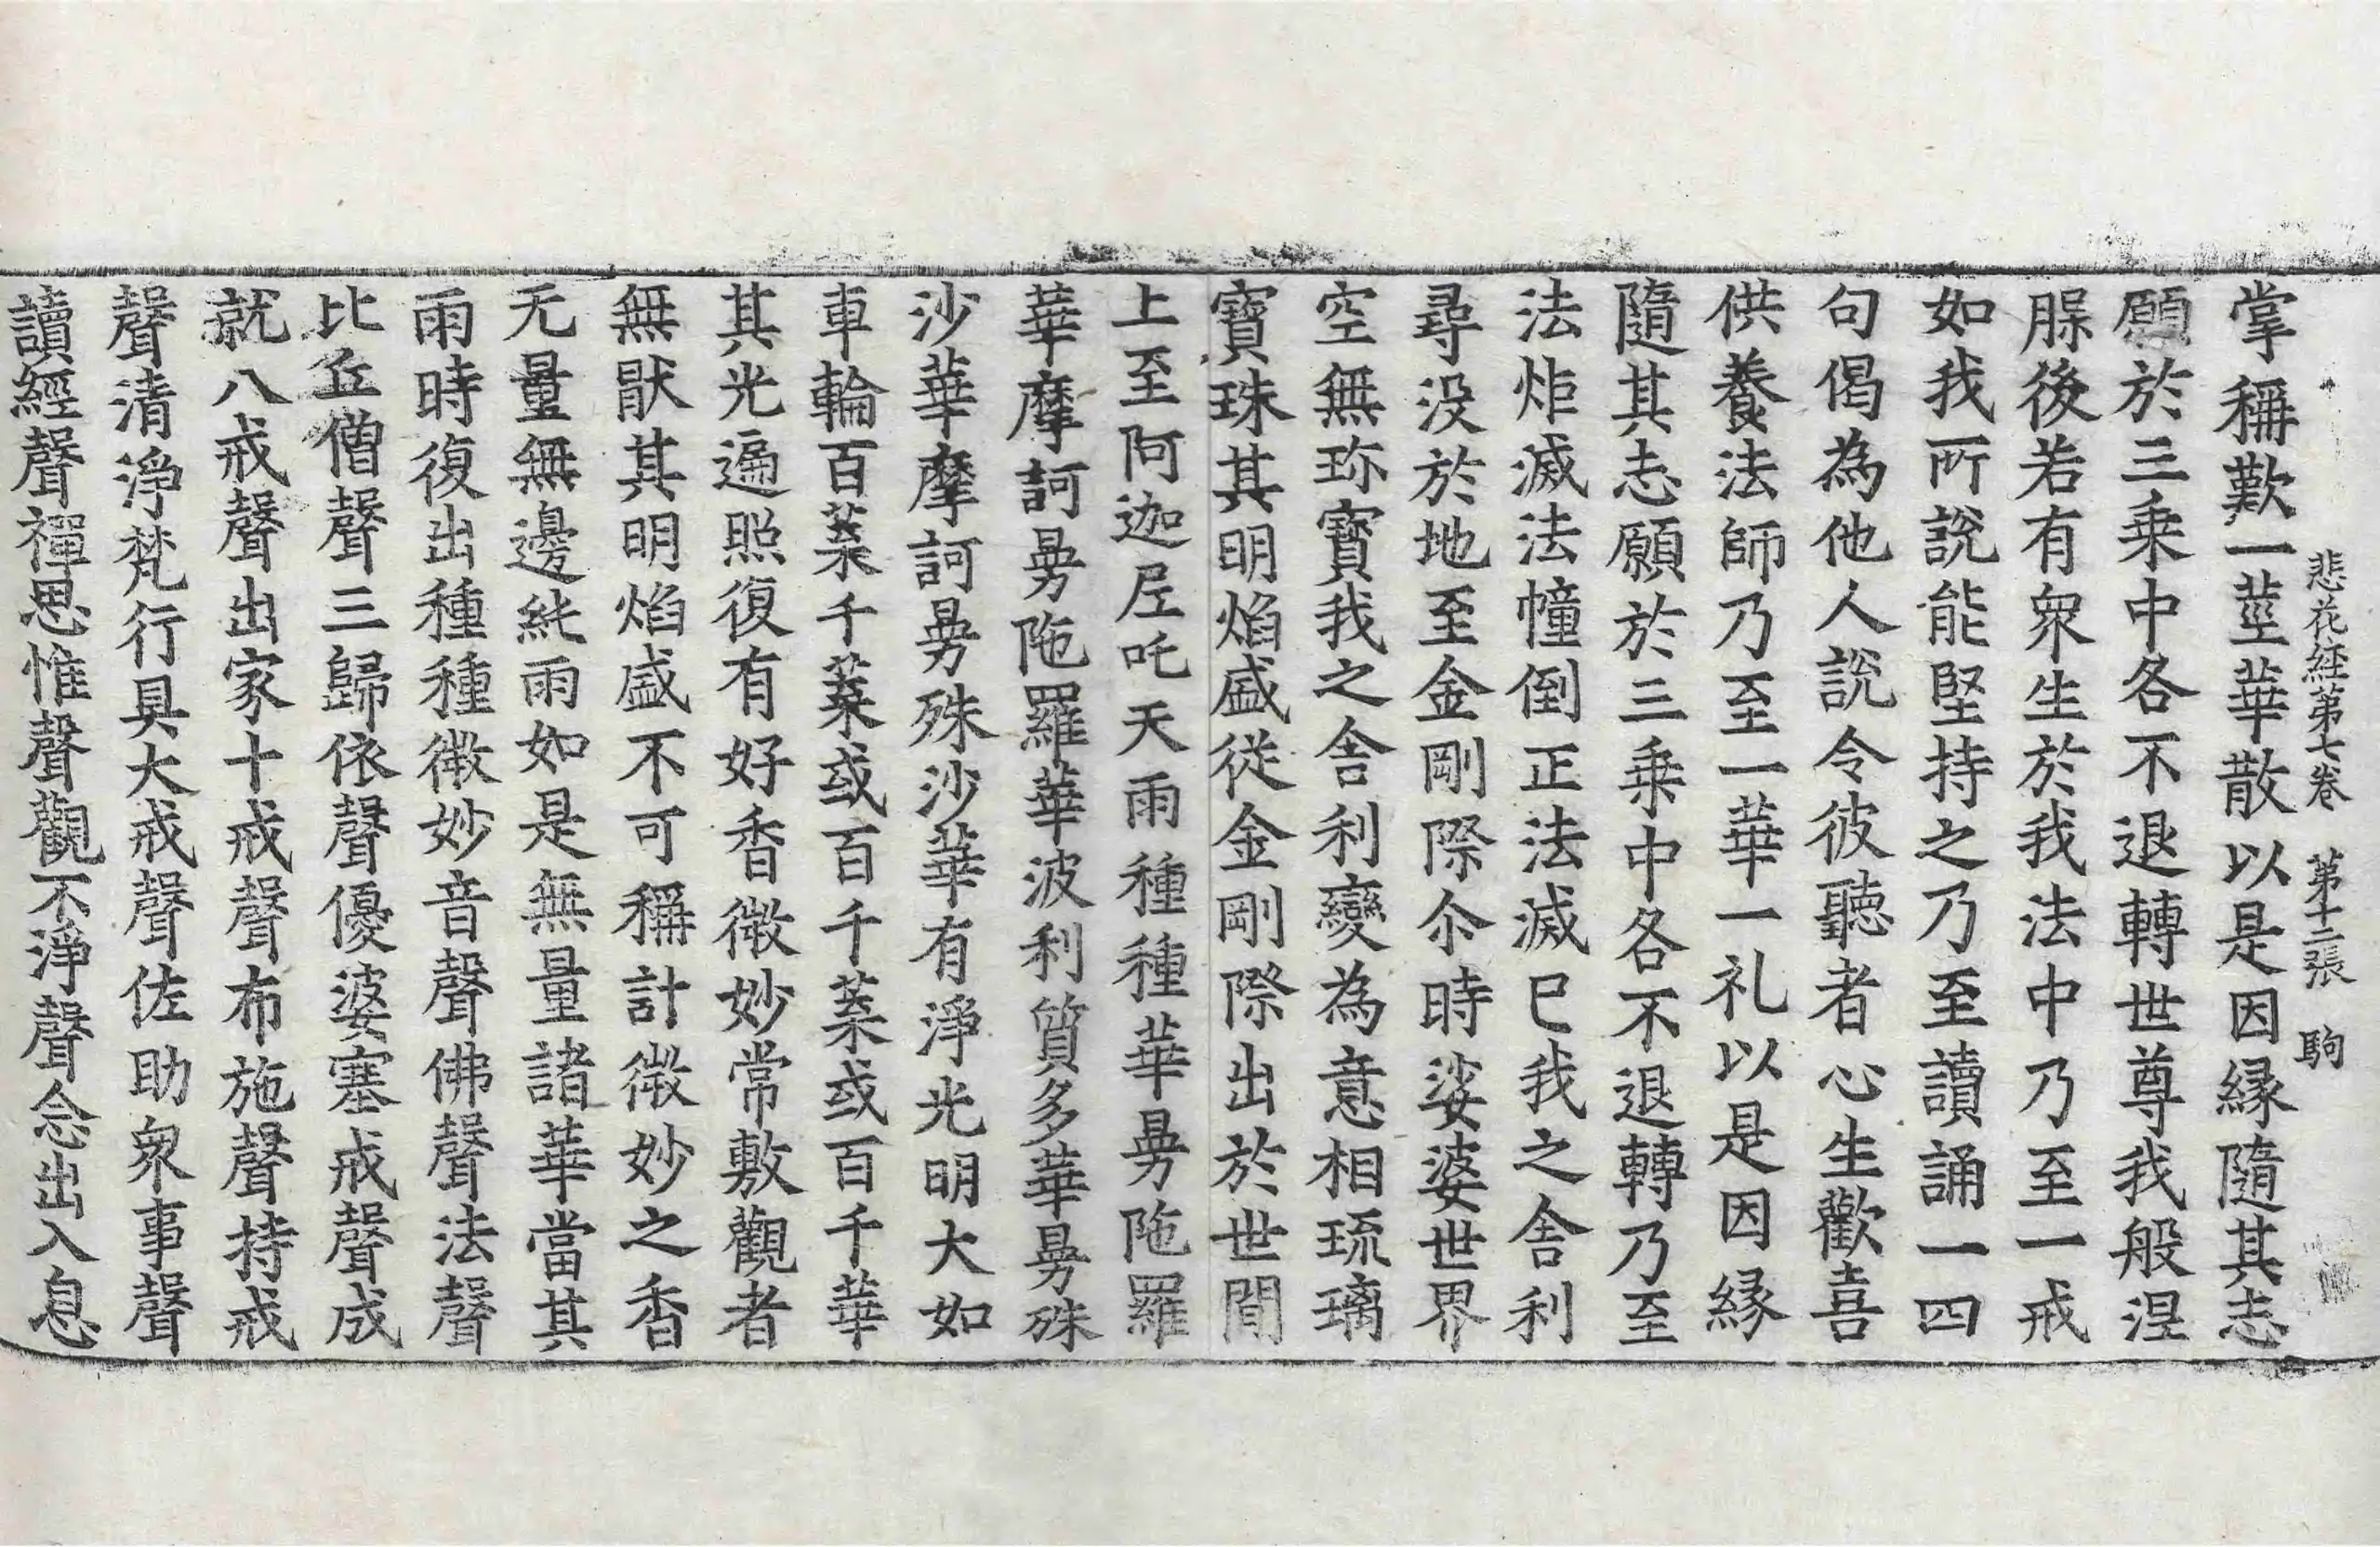 悲花經第七卷　第十二張　駒
掌稱歎一莖華散以是因緣隨其志
願於三乗中各不退轉世尊我般涅
𦙃後若有衆生於我法中乃至一戒
如我所說能堅持之乃至讀誦一四
句偈為他人說令彼聽者心生歡喜
供養法師乃至一華一礼以是因緣
隨其志願於三乗中各不退轉乃至
法炬滅法幢倒正法滅已我之舍利
尋没於地至金剛際尒時娑婆世界
空無珎寶我之舍利變為意相琉璃
寶珠其明焰盛從金剛際出於世間
上至阿迦尼吒天雨種種華曼陁羅
華摩訶曼陁羅華波利質多華曼殊
沙華摩訶曼殊沙華有淨光明大如
車輪百葉千葉或百千葉或百千華
其光遍照復有好香微妙常敷觀者
無猒其明焰盛不可稱計微妙之香
无量無邊純雨如是無量諸華當其
雨時復出種種微妙音聲佛聲法聲
比丘僧聲三歸依聲優婆塞戒聲成
就八戒聲出家十戒聲布施聲持戒
聲清淨梵行具大戒聲佐助衆事聲
讀經聲禪思惟聲觀不淨聲念出入息